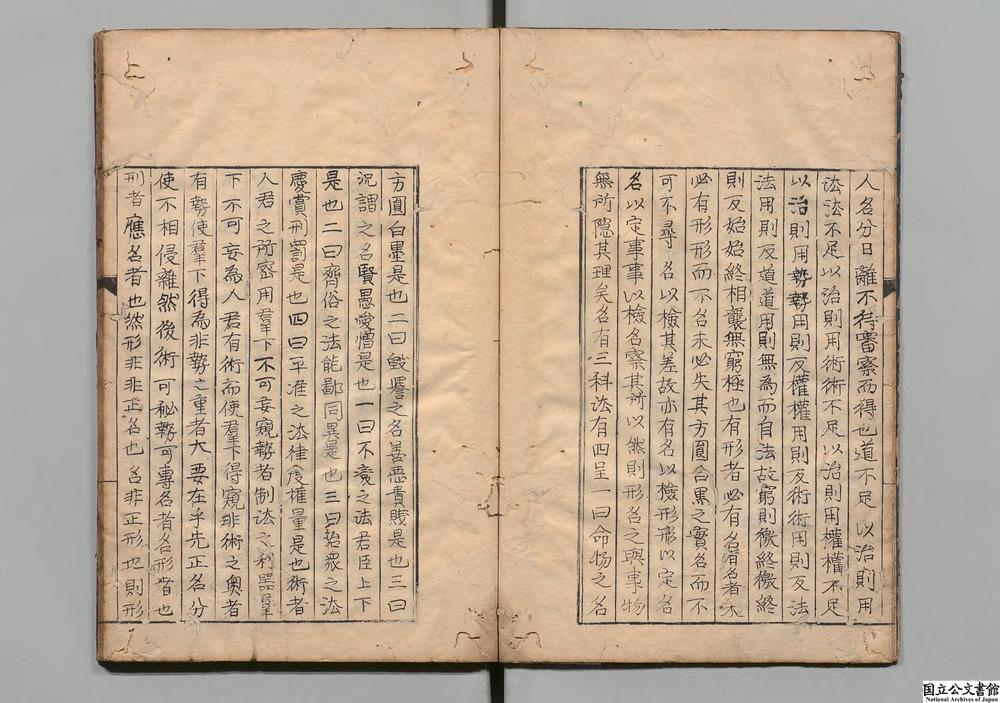 人名分日離不待審察而得也道不足以治則用
法法不足以治則用術術不足以治則用權權不足
以治則用勢勢用則反權權用則反術術用則反法
法用則反道道用則無為而自法故窮則徼終徼終
則反始始終相襲無窮極也有形者必有名名者不
必有形形而不名未必失其方圓合黑之實名而不
可不尋名以檢其差故亦有名以檢形形以定名
名以定事事以檢名察其所以然則形名之與事物
無所隠其理矣名有三科法有四呈一曰命物之名
方圓白墨是也二曰毀譽之名善惡貴賤是也三曰
況謂之名賢愚愛憎是也一曰不變之法君臣上下
是也二曰齊俗之法能鄙同異是也三曰治衆之法
慶賞刑罰是也四曰平准之法律度權量是也術者
人君之所密用羣下不可妄窺勢者制法之利器羣
下不可妄為人君有術而使羣下得窺非術之奥者
有勢使羣下得為非勢之重者大要在乎先正名分
使不相侵雜然後術可秘勢可專名者名形者也
刑者應名者也然形非非正名也名非正形也則形
国立公文書館
National Archives of Japan